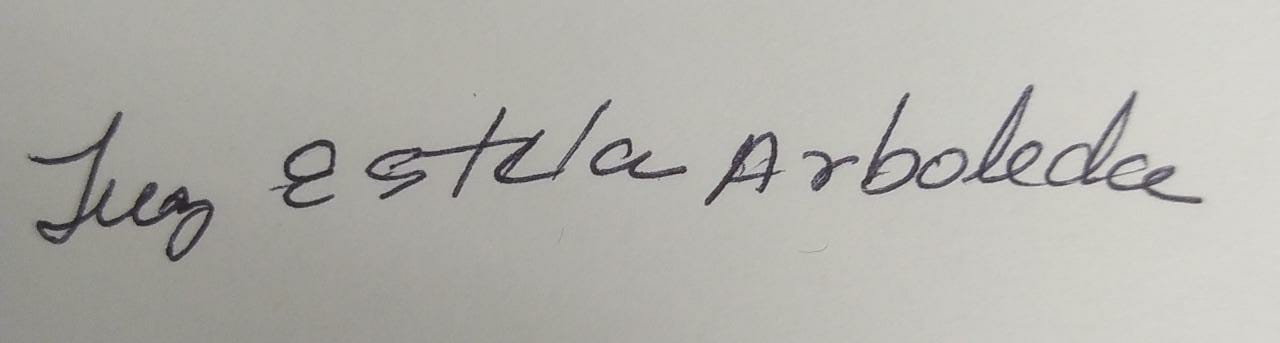 Luz Estela Arboleda